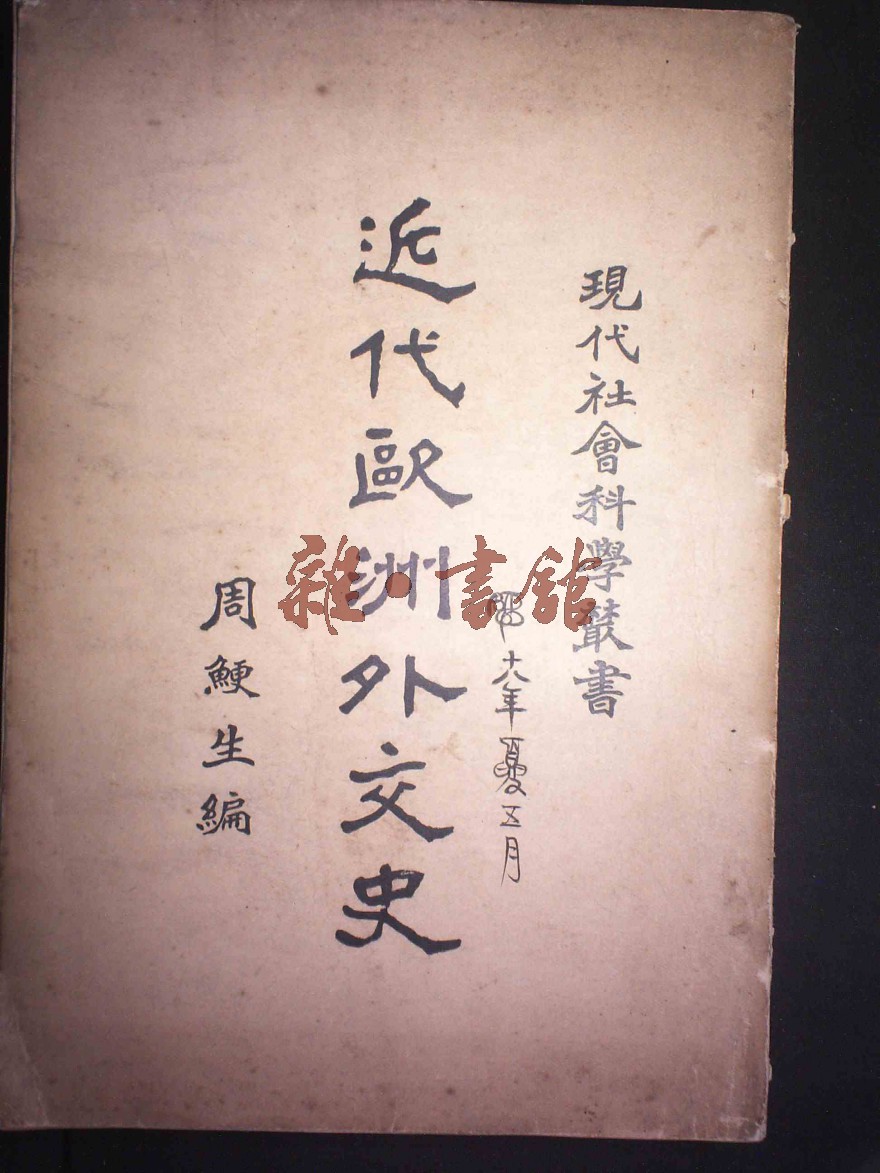 現代社會科學叢書
十六年夏五月
近代歐洲外交史
周鯁生編
雜·書館